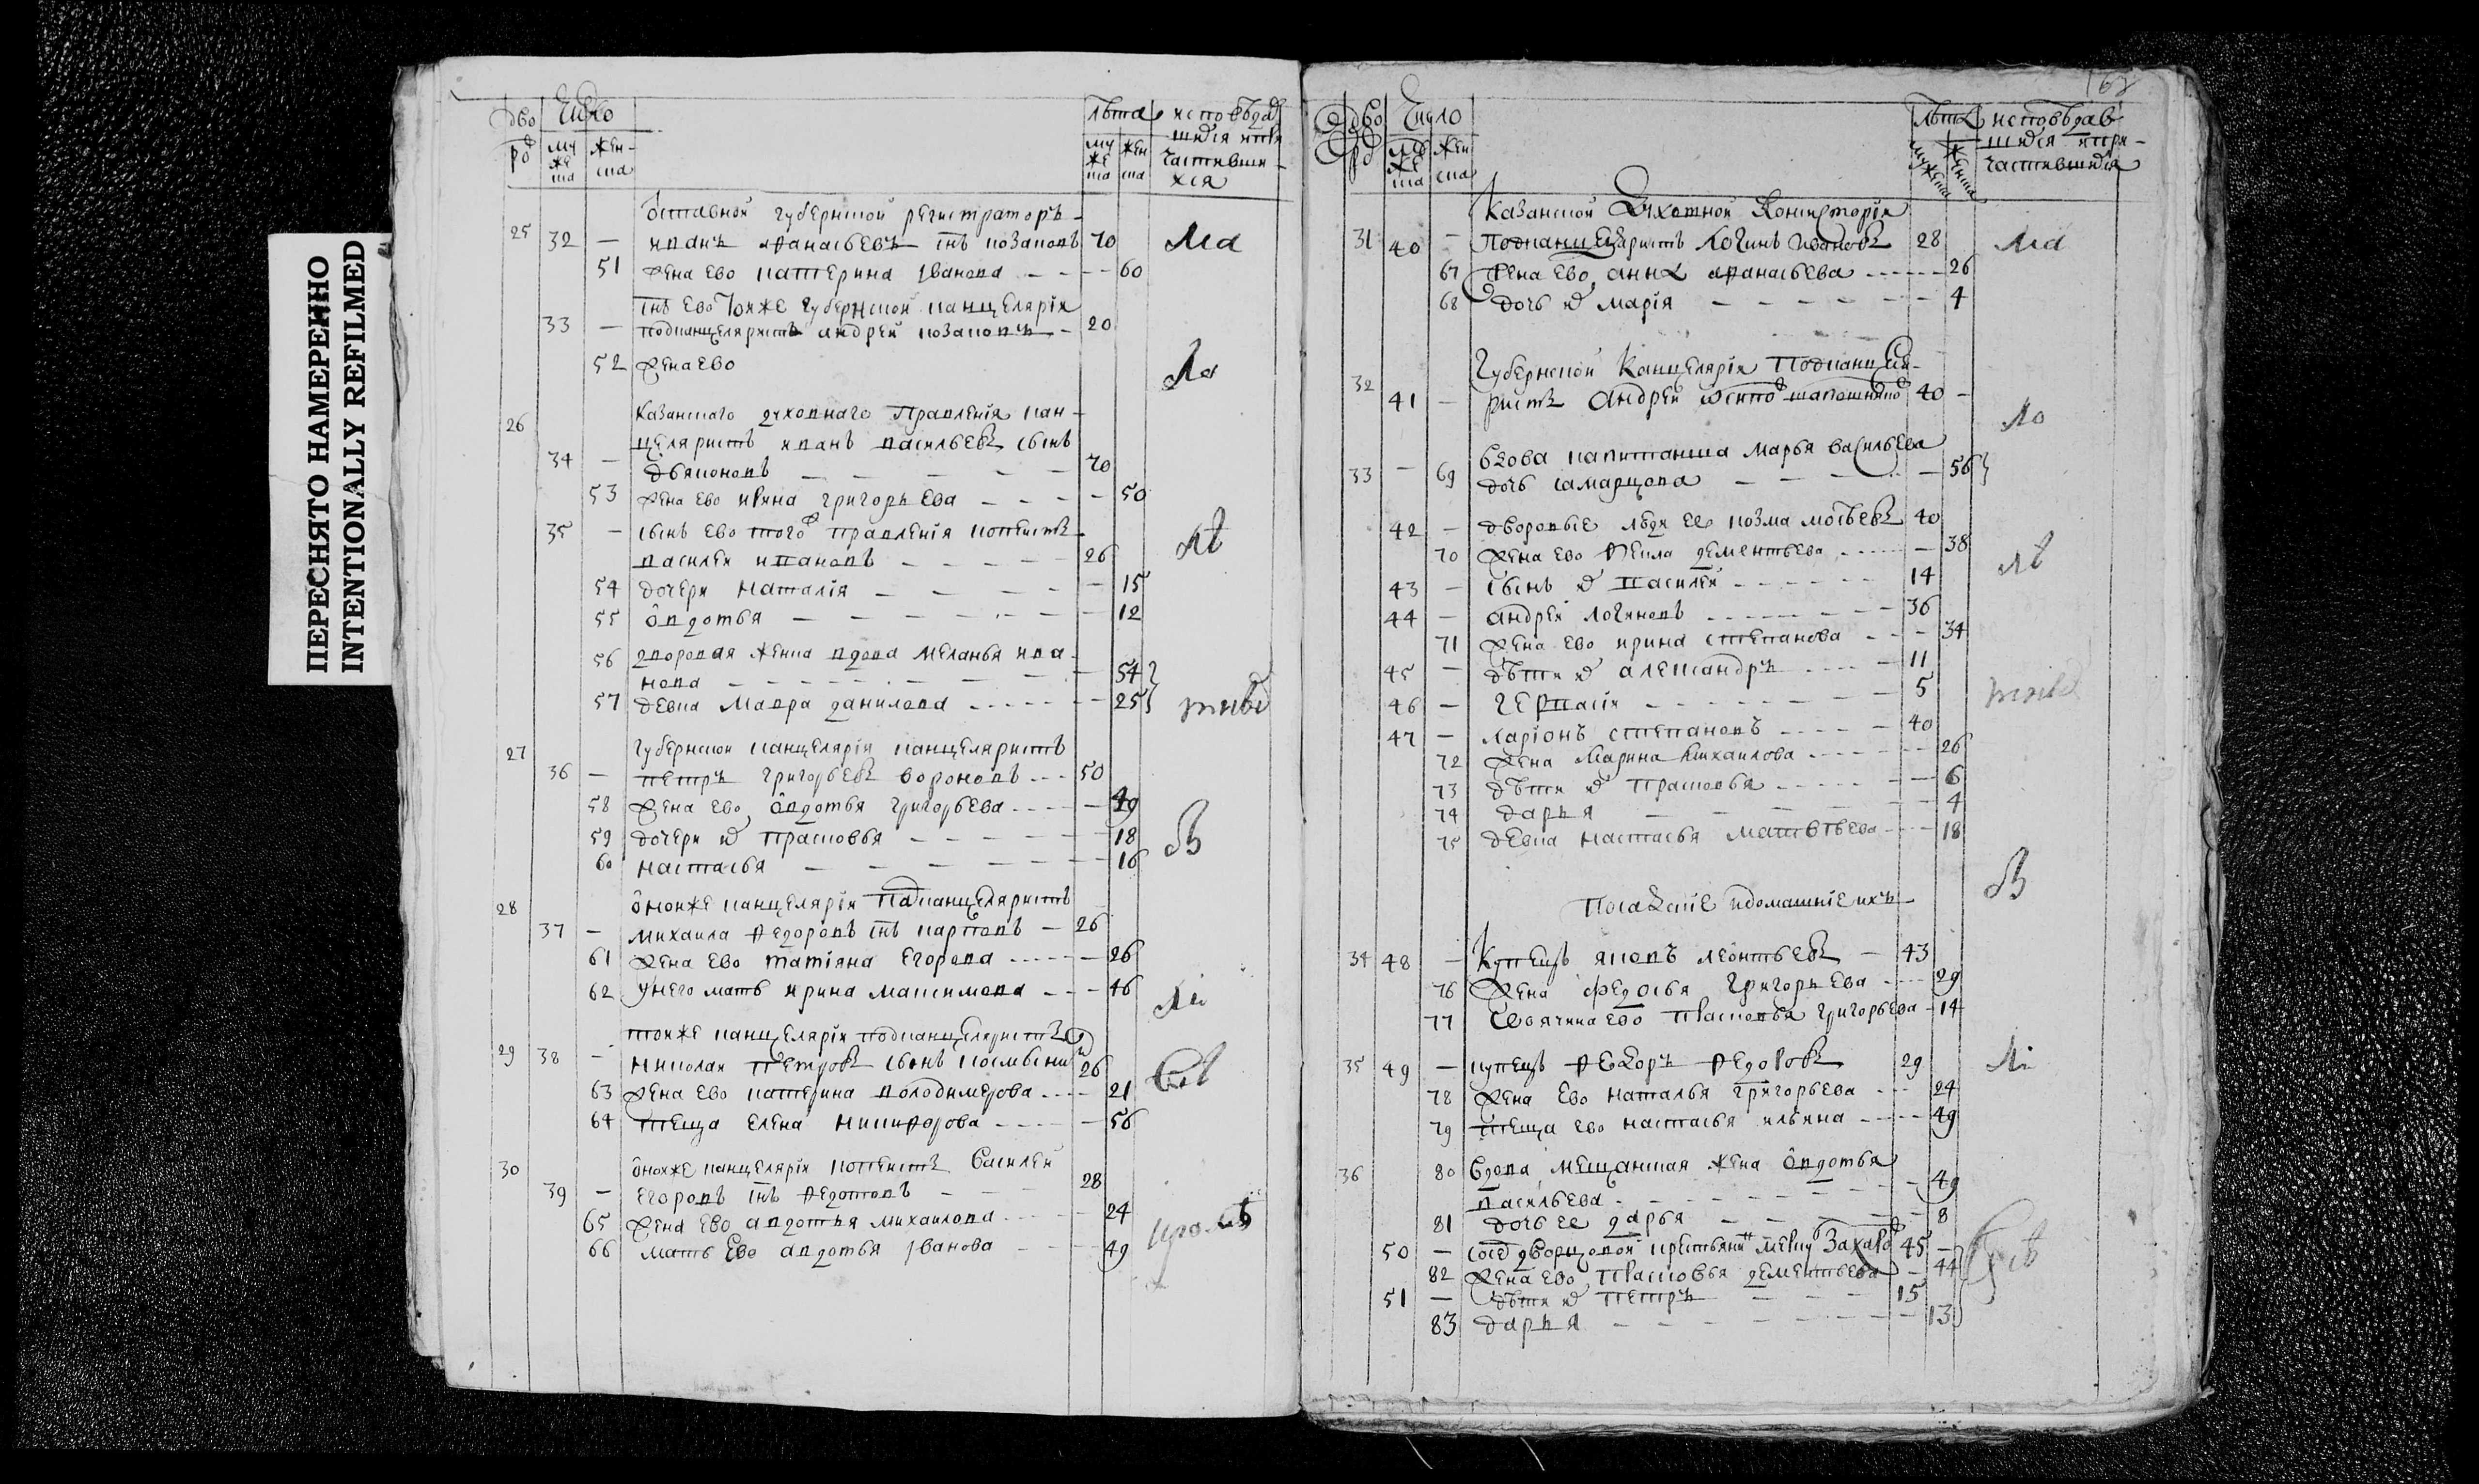 ПЕРЕСНЯТО НАМЕРЕННО
INTENTIONALLY REFILMED
дво число лѣта исповѣдав
ро му же ска жен ска му же ска жен ска шихся и при
частивши
хся
отставной губернской регистраторъ
25 32 — иванъ афанасьевъ снъ козаковъ 70
51 жена ево катерина иванова — 60
снъ ево тоиже губернской канцелярiи
33 — подканцеляристъ андрей козаковъ — 20
52 жена ево
26 казанскаго духовнаго правленiя кан-
целяристъ иванъ васильевъ сынъ
34 — дьяконовъ — 70
53 жена ево ирина григорьева — 50
35 — сынъ ево того правленiя копеистъ
василеи ивановъ — 26
54 дочери наталiя — 15
55 овдотья — 12
56 дворовая женка вдова меланья ива-
нова — 54
57 девка мавра данилова — 25
27 губернской канцелярiи канцеляристъ
36 — петръ григорьевъ вороновъ — 50
58 жена ево овдотья григорьева — 49
59 дочери их прасковья — 18
60 настасья — 16
28 оноиже канцелярiи падканцеляристъ
37 — михаила федоровъ снъ карповъ — 26
61 жена ево татiяна егорова — 26
62 у него мать ирина максимова — 46
тоиже канцелярiи подканцеляристъ
29 38 — николаи петровъ сынъ 26
63 жена ево катерина володимерова — 21
64 теща елена никифорова — 56
30 оноиже канцелярiи копеистъ василеи
39 — егоровъ снъ федотовъ — 28
65 жена ево авдотья михаилова — 24
66 мать ево авдотья iванова — 49
162
дво число лѣта исповѣдав
ро му же ска жен ска мужеска женска шихся и при-
частившихся
казанской духовной консисторiи
31 40 — подканцеляристъ логинъ ивановъ 28
67 жена ево анна афанасьева — 26
68 дочь их марiя — 4
32 губернской канцелярiи подканцеля-
41 — ристъ андреи 40 —
33 — 69 вдова капитанша марья васильева
дочь самарцова — 56
42 — дворовые люди ее козма 40
70 жена ево фекла дементьева — 38
43 — сынъ их василеи — 14
44 — андреи логиновъ — 36
71 жена ево ирина степанова — 34
45 — дѣти их александръ — 11
46 — герасiи — 5
47 — ларiонъ степановъ — 40
72 жена марина михаилова — 26
73 дѣти их прасковья — 6
74 дарья — 4
75 девка настасья матвѣева — 18
посацкiе и домашнiе ихъ
34 48 — купецъ яковъ леонтьевъ — 43
76 жена федосья григорьева — 29
77 своячина ево прасковья григорьева — 14
35 49 — купецъ федоръ федоровъ 29
78 жена ево наталья григорьева — 24
79 теща ево настасья ильина — 49
36 80 вдова мещанская жена овдотья
васильева — 49
81 дочь ее дарья — 8
50 — дворцовой крестьянинъ захаръ 45 —
82 жена ево прасковья дементьева — 44
51 — дѣти их петръ — 15
83 дарья — 13